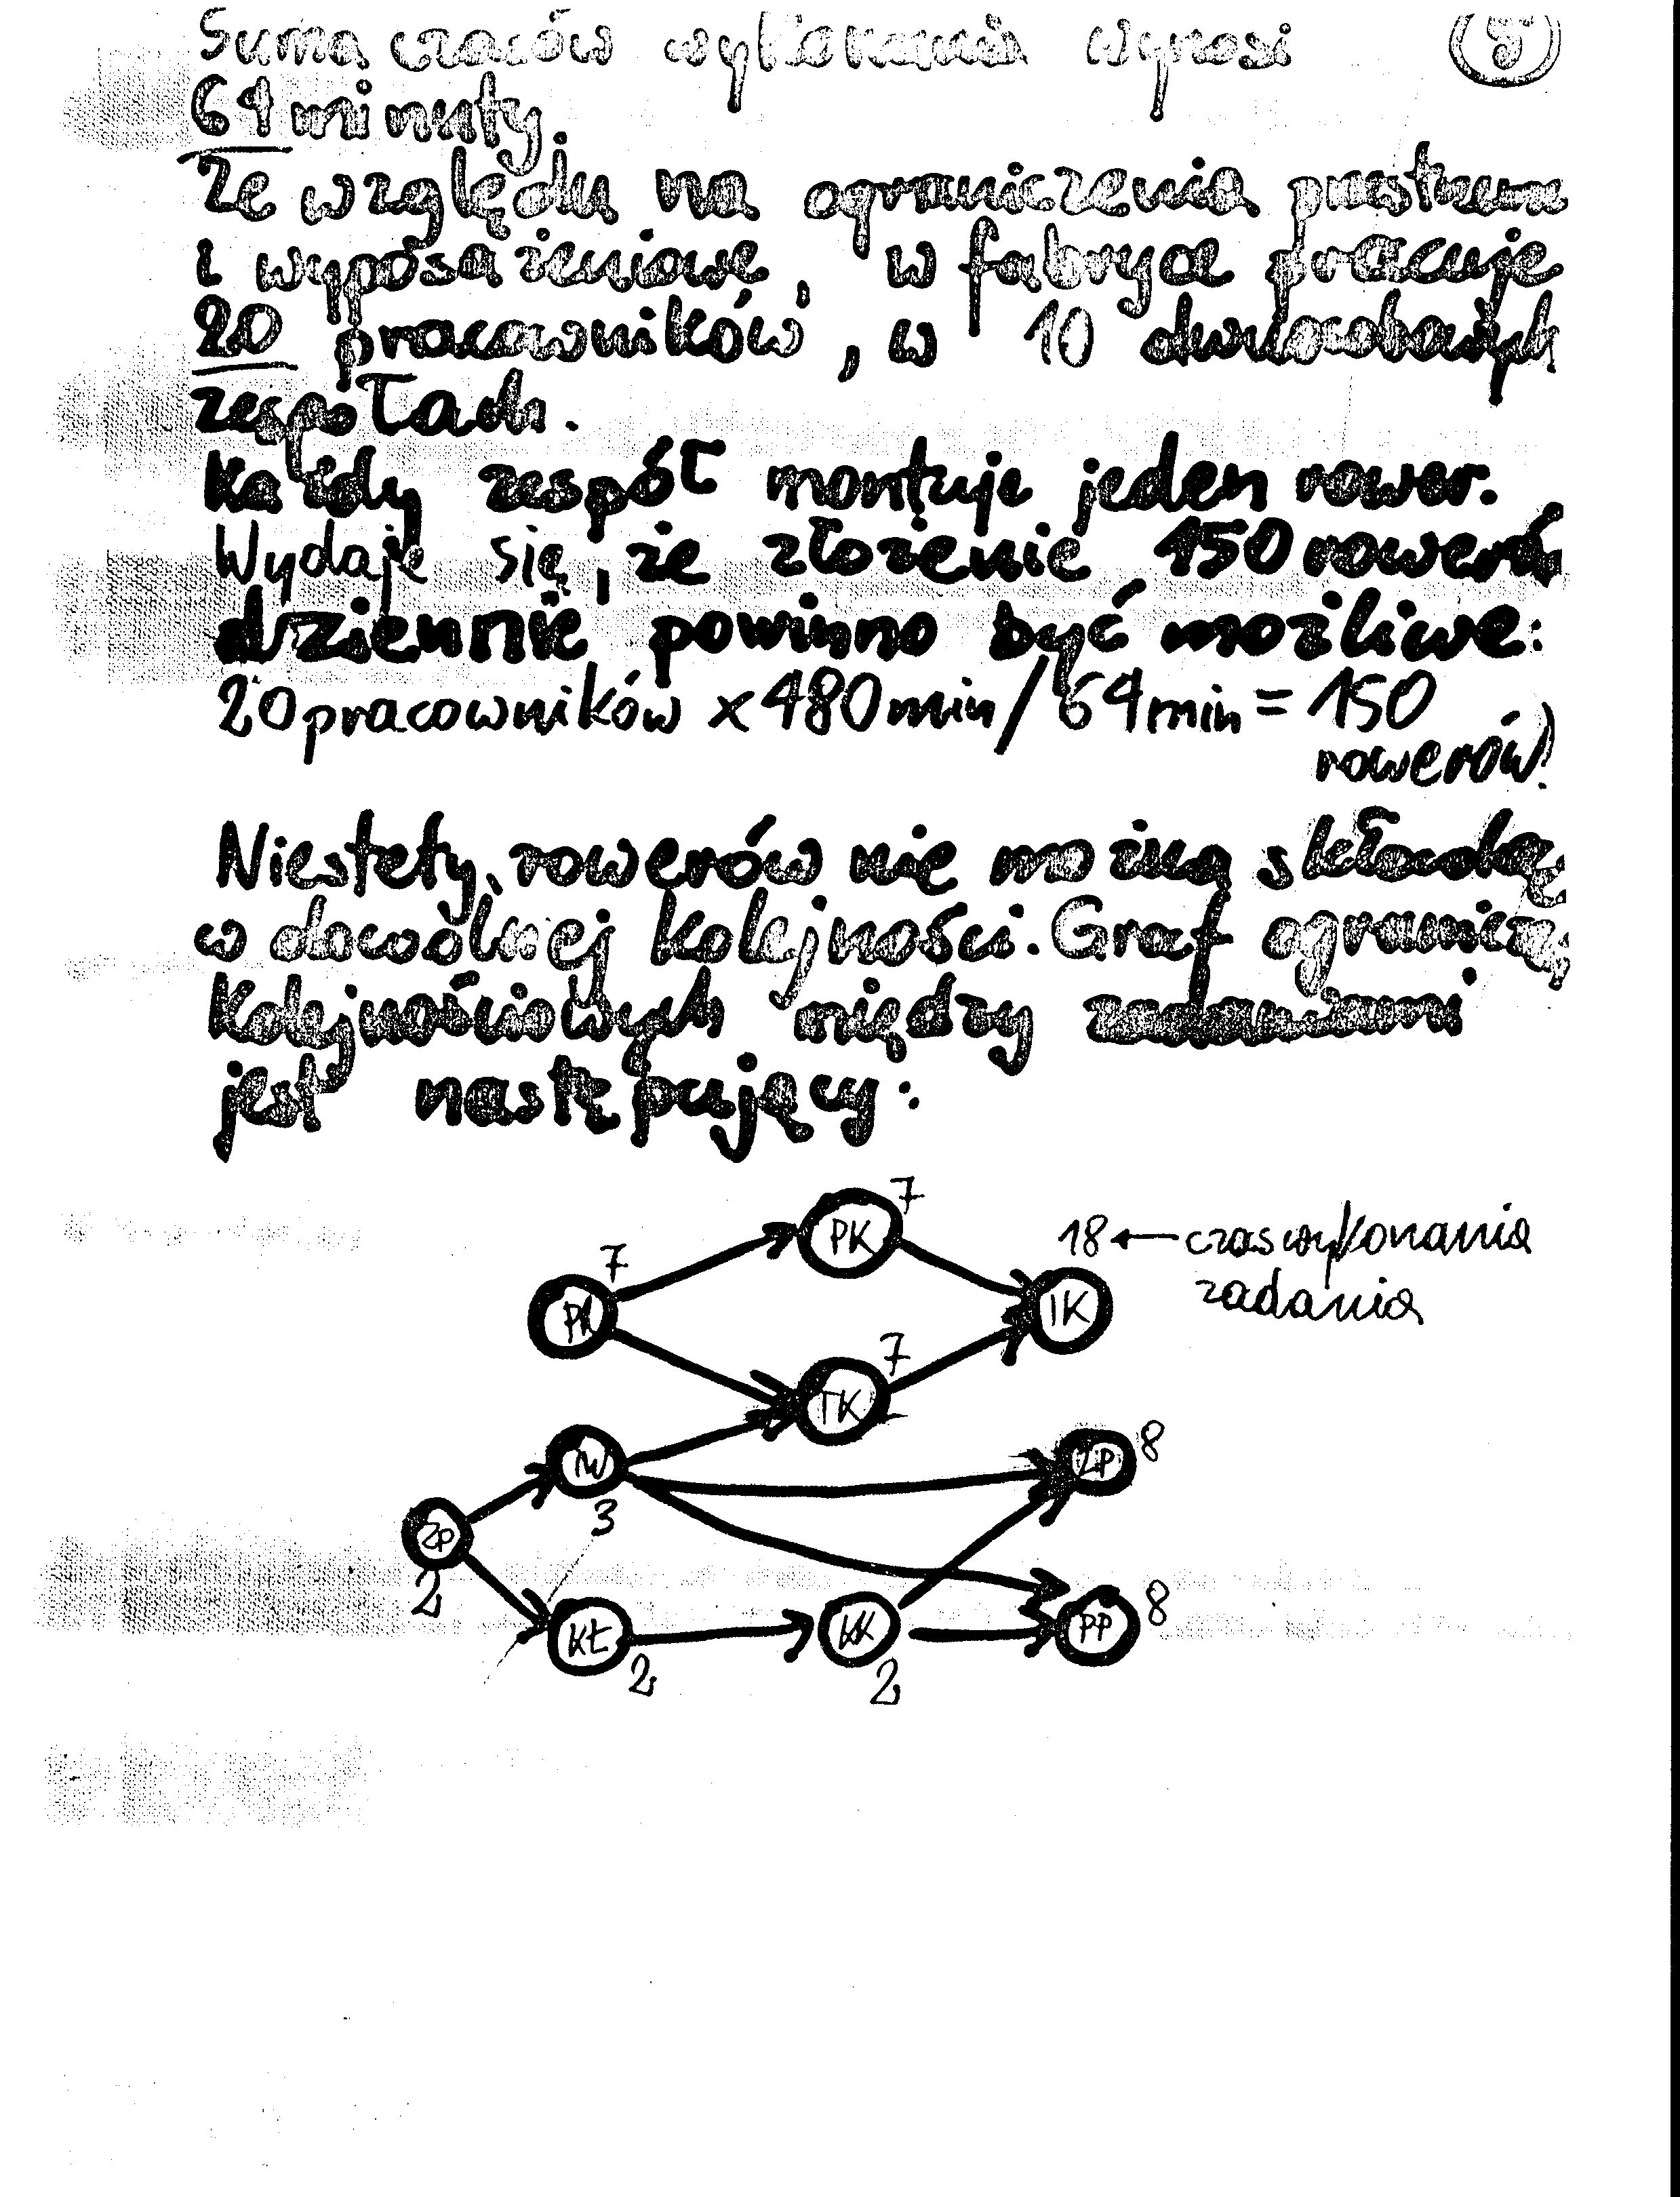 Suma czasów wykonania wynosi 5
64 minuty.
Ze względu na ograniczenia przestrzenne
i wyposażeniowe, w fabryce pracuje
20 pracowników, w 10 dwuosobowych
zespołach.
Każdy zespół montuje jeden rower.
Wydaje się, że złożenie 150 rowerów
dziennie powinno być możliwe:
20 pracowników x 480 min / 64 min = 150
rowerów!
Niestety, rowerów nie można składać
w dowolnej kolejności. Graf ograniczeń
kolejnościowych między zadaniami
jest następujący:
7
PK
18 ← czas wykonania
zadania
7
IK
7
TK
8
3
ZP
2
KŁ
2
KK
2
PP
8